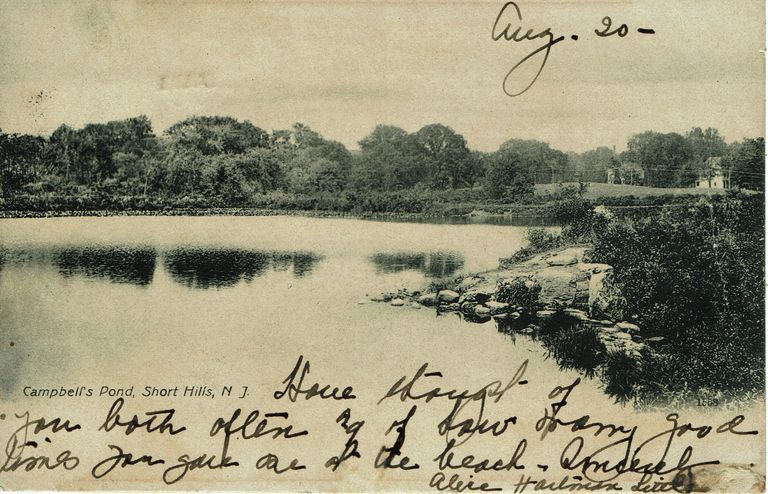 Aug. 20-
Campbell's Pond, Short Hills, N. J.
Have thought of
you both often & of how many good
times you gave me at the beach - Sincerely
Alice Hartman